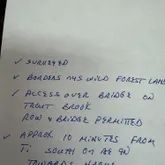 ✓ SURVEYED
✓ BORDERS NYS WILD FOREST LAND
✓ ACCESS OVER BRIDGE ON
TROUT BROOK
ROW & BRIDGE PERMITTED
✓ APPROX. 10 MINUTES FROM
Ti SOUTH ON
TOWARDS